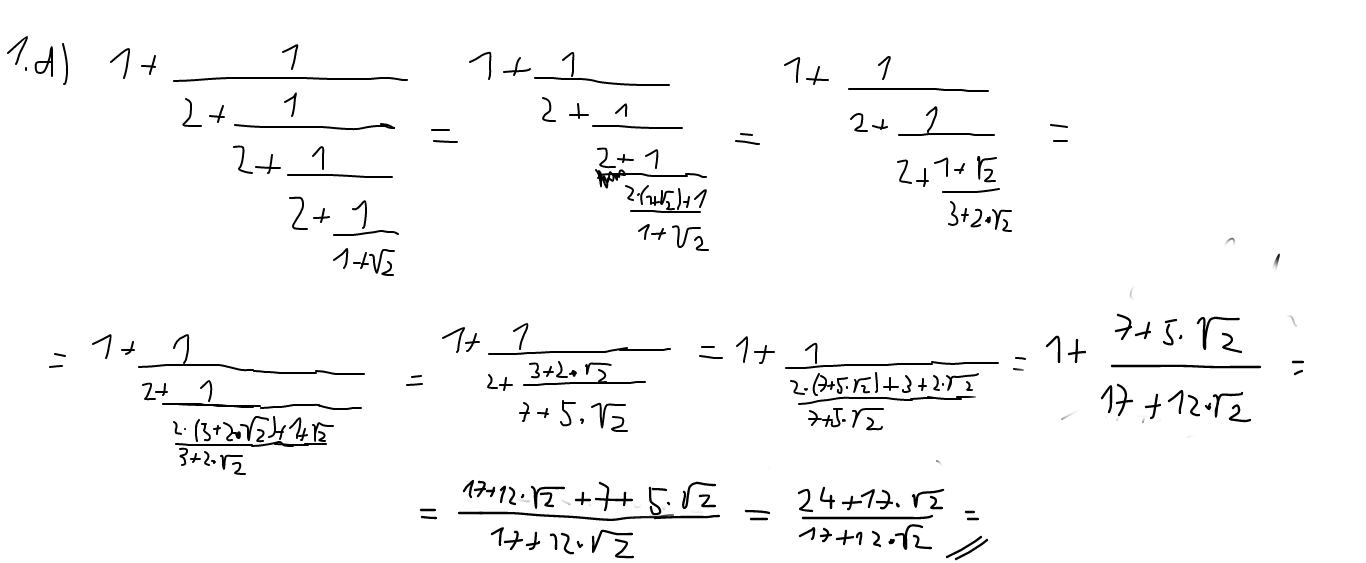 1.d) 1 + 1/(2 + 1/(2 + 1/(2 + 1/(1+√2)))) = 1 + 1/(2 + 1/(2 + 1/((2·(1+√2)+1)/(1+√2)))) = 1 + 1/(2 + 1/(2 + (1+√2)/(3+2·√2))) =
= 1 + 1/(2 + 1/((2·(3+2·√2)+1+√2)/(3+2·√2))) = 1 + 1/(2 + (3+2·√2)/(7+5·√2)) = 1 + 1/((2·(7+5·√2)+3+2·√2)/(7+5·√2)) = 1 + (7+5·√2)/(17+12·√2) =
= (17+12·√2+7+5·√2)/(17+12·√2) = (24+17·√2)/(17+12·√2) =